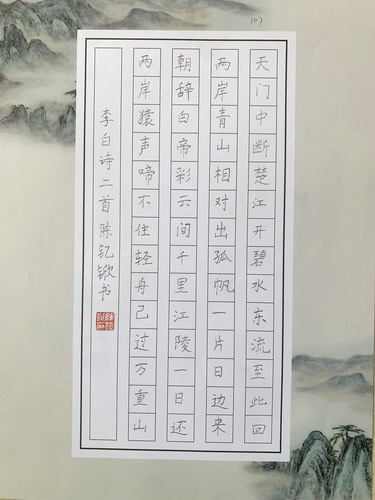 107
天门中断楚江开碧水东流至此回
两岸青山相对出孤帆一片日边来
朝辞白帝彩云间千里江陵一日还
两岸猿声啼不住轻舟已过万重山
李白诗二首陈钇锨书